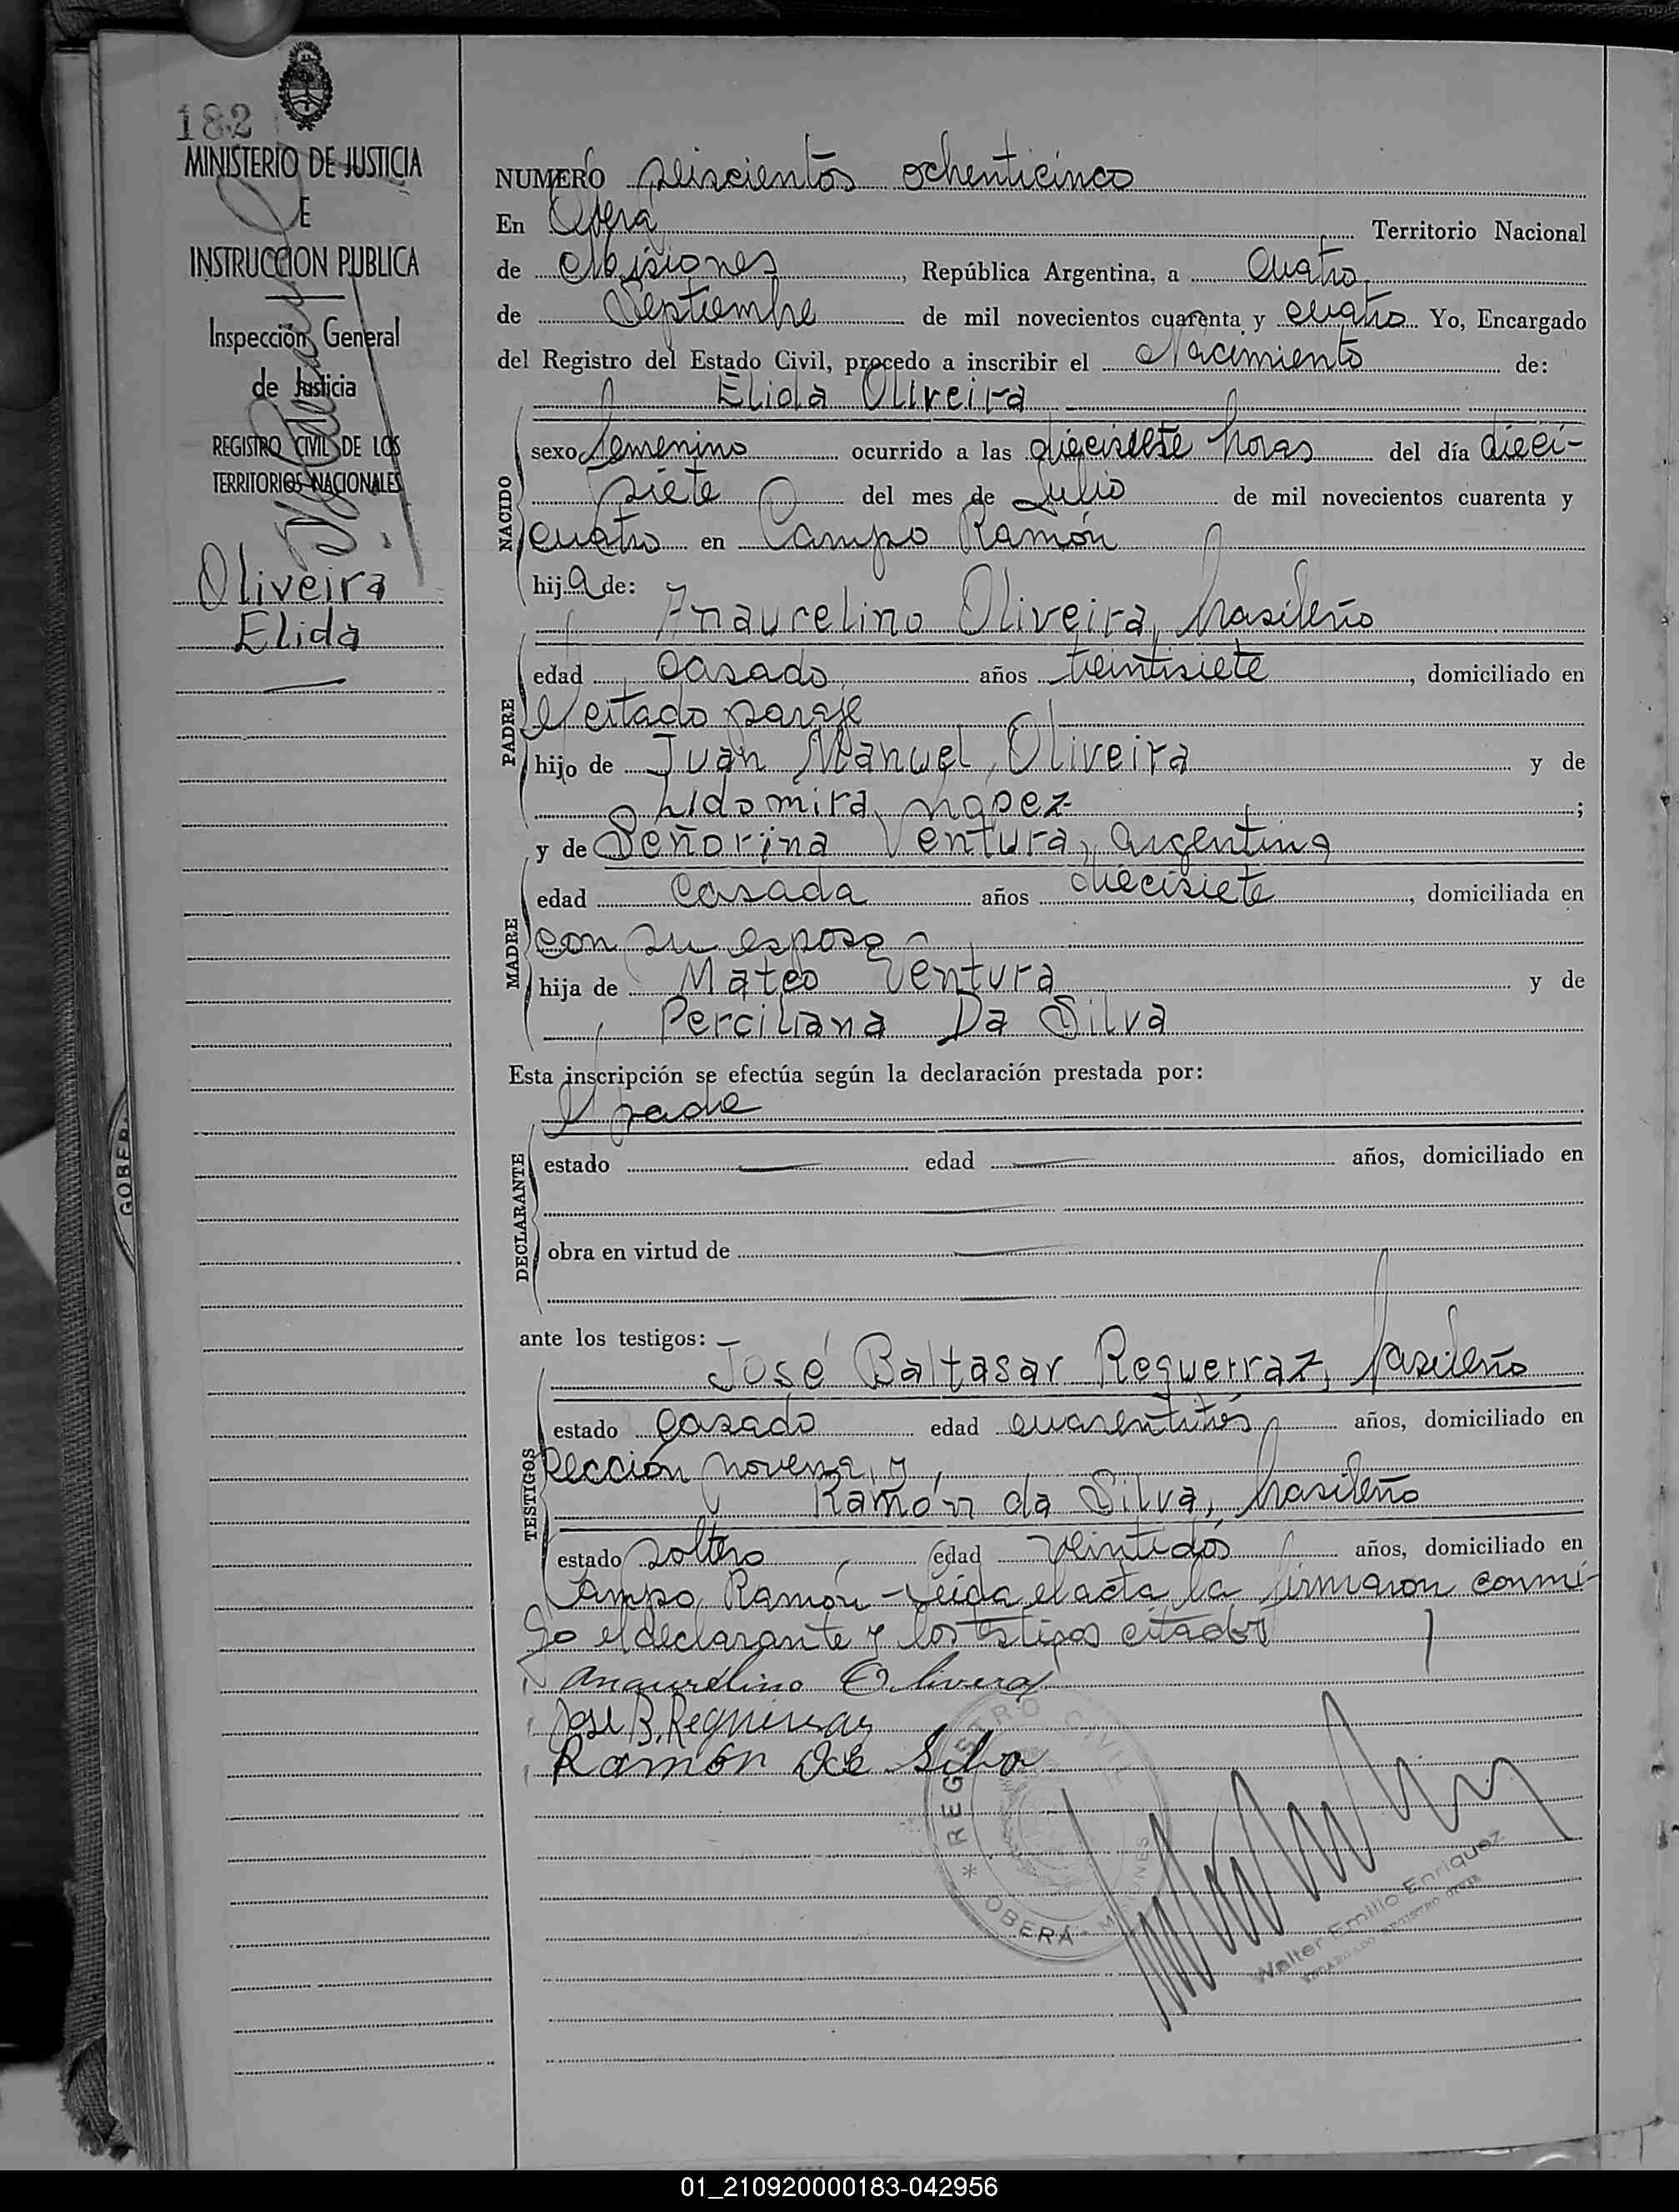 182
MINISTERIO DE JUSTICIA
E
INSTRUCCION PUBLICA
Inspección General
de Justicia
REGISTRO CIVIL DE LOS
TERRITORIOS NACIONALES
Oliveira
Elida
NUMERO seiscientos ochenticinco
En Oberá Territorio Nacional
de Misiones, República Argentina, a cuatro
de Septiembre de mil novecientos cuarenta y cuatro Yo, Encargado
del Registro del Estado Civil, procedo a inscribir el Nacimiento de:
Elida Oliveira
NACIDO
sexo femenino ocurrido a las diecisiete horas del día dieci-
siete del mes de Julio de mil novecientos cuarenta y
cuatro en Campo Ramón
hija de:
Anaurelino Oliveira, brasileño
PADRE
edad casado, años treintisiete, domiciliado en
el citado paraje
hijo de Juan Manuel Oliveira y de
Lidomira ;
y de Señorina Ventura, argentina
MADRE
edad casada años diecisiete, domiciliada en
con su esposo
hija de Mateo Ventura y de
Perciliana Da Silva
Esta inscripción se efectúa según la declaración prestada por:
el padre
DECLARANTE
estado edad años, domiciliado en
obra en virtud de
ante los testigos:
José Baltasar Reguerraz, brasileño
TESTIGOS
estado casado edad cuarentitrés años, domiciliado en
Sección novena, y
Ramón da Silva, brasileño
estado soltero edad veintidós años, domiciliado en
Campo Ramón - Leida el acta la firmaron conmi-
go el declarante y los testigos citados
Anaurelino Olivera
José B. Reguerraz
Ramón da Silva
* REGISTRO CIVIL
OBERÁ - MISIONES
Walter Emilio Enriquez
ENCARGADO REGISTRO CIVIL
GOBER
01_210920000183-042956